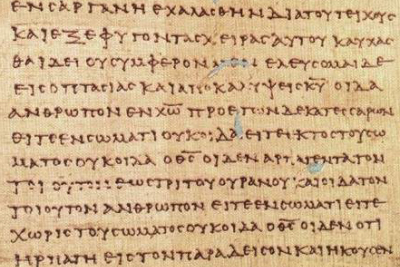 ΕΝ ϹΑΡΓΑΝΗ ΕΧΑΛΑϹΘΗΝ ΔΙΑ ΤΟΥ ΤΕΙΧΟΥϹ
ΚΑΙ ΕΞΕΦΥΓΟΝ ΤΑϹ ΧΕΙΡΑϹ ΑΥΤΟΥ ΚΑΥΧΑϹ
ΘΑΙ ΔΕΙ ΟΥ ϹΥΜΦΕΡΟΝ ΕΛΕΥϹΟΜΑΙ ΔΕ
ΕΙϹ ΟΠΤΑϹΙΑϹ ΚΑΙ ΑΠΟΚΑΛΥΨΕΙϹ Κ̅Υ̅ ΟΙΔΑ
ΑΝΘΡΩΠΟΝ ΕΝ Χ̅Ω̅ ΠΡΟ ΕΤΩΝ ΔΕΚΑΤΕϹϹΑΡΩΝ
ΕΙΤΕ ΕΝ ϹΩΜΑΤΙ ΟΥΚ ΟΙΔΑ ΕΙΤΕ ΕΚΤΟϹ ΤΟΥ ϹΩ
ΜΑΤΟϹ ΟΥΚ ΟΙΔΑ Ο Θ̅Ϲ̅ ΟΙΔΕΝ ΑΡΠΑΓΕΝΤΑ ΤΟΝ
ΤΟΙΟΥΤΟΝ ΕΩϹ ΤΡΙΤΟΥ ΟΥΡΑΝΟΥ ΚΑΙ ΟΙΔΑ ΤΟΝ
ΤΟΙΟΥΤΟΝ ΑΝΘΡΩΠΟΝ ΕΙΤΕ ΕΝ ϹΩΜΑΤΙ ΕΙΤΕ
ΧΩΡΙϹ ΤΟΥ ϹΩΜΑΤΟϹ ΟΥΚ ΟΙΔΑ Ο Θ̅Ϲ̅ ΟΙΔΕΝ ΟΤΙ
ΗΡΠΑΓΗ ΕΙϹ ΤΟΝ ΠΑΡΑΔΕΙϹΟΝ ΚΑΙ ΗΚΟΥϹΕΝ